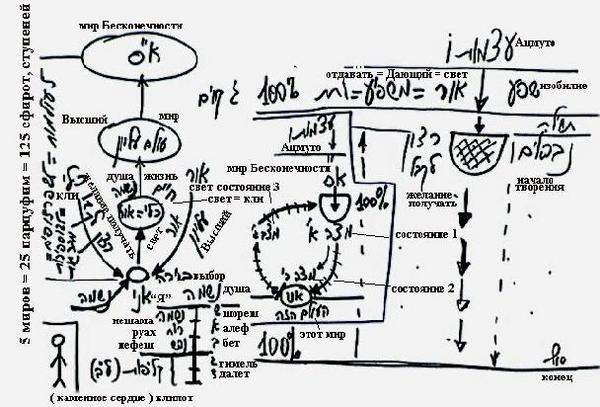 5 миров = 25 парцуфим = 125 сфирот, ступеней
мир Бесконечности
א"ס
Высший
мир
עולם עליון
душа
жизнь
נשמה
חיים
אור
свет состояние 3
свет = кли
כלי = אור
желание получать
свет
אור
Высший
עליון
כלי
кли
רצון
בחירה
выбор
אני
"Я"
נשמה
נשמה
душа
нешама
руах
нефеш
נשמה
רוח
נפש
шореш
алеф
бет
гимель
далет
א
ב
ג
ד
קליפות
( каменное сердце ) клипот
עצמותו
Ацмуто
отдавать = Дающий = свет
100%
אור = משפיע = תת
שפע
изобилие
עצמותו
Ацмуто
мир Бесконечности
א"ס
100%
רצון
לקבל
желание
получать
תחילת
הנבראים
начало
творения
מצב א'
состояние 1
מצב ג'
מצב ב'
состояние 2
העולם הזה
этот мир
100%
סוף
конец